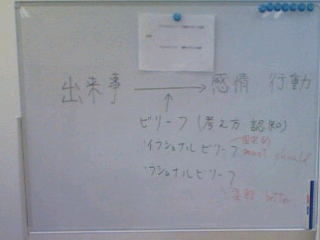 出来事 → 感情 行動
↑
ビリーフ (考え方 認知)
イラショナルビリーフ
must should
ラショナルビリーフ
better